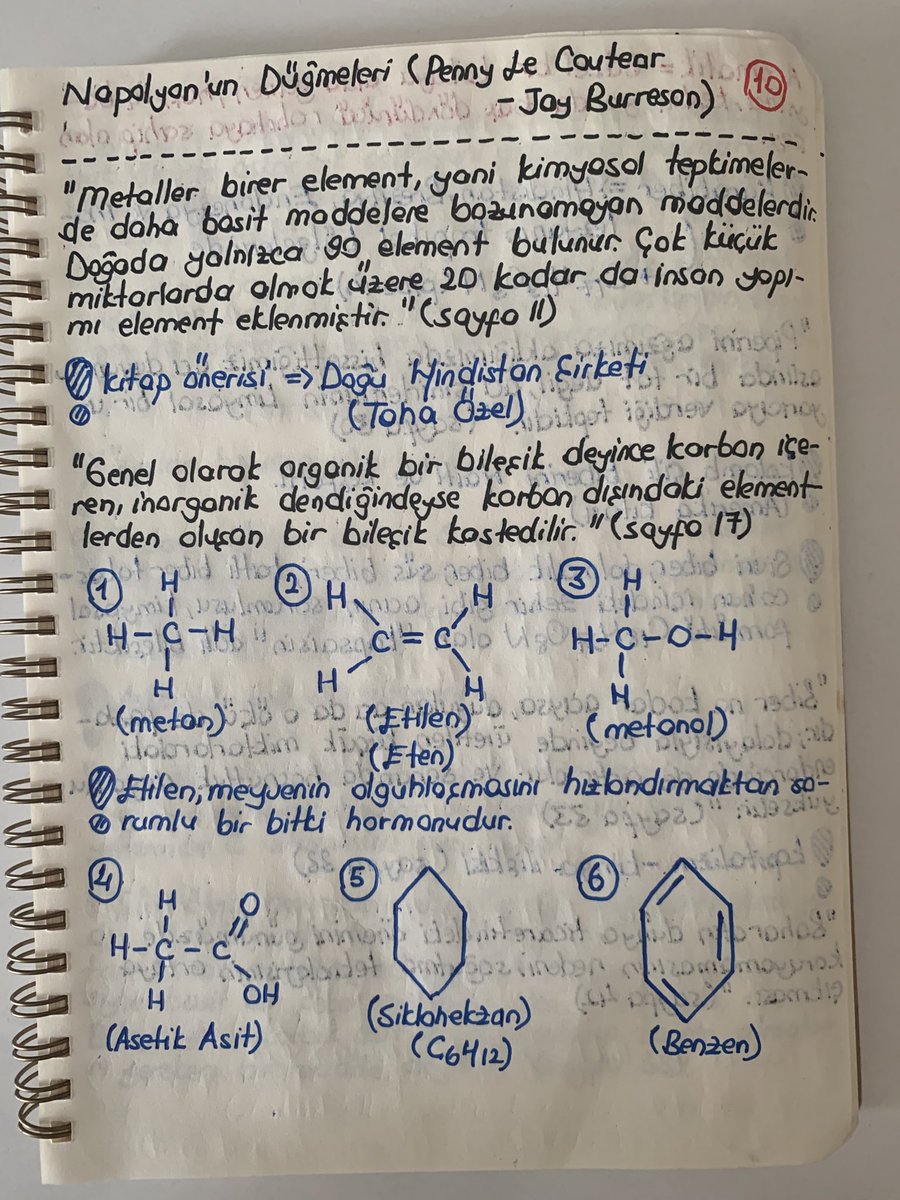 Napolyon'un Düğmeleri (Penny Le Couteur
- Jay Burreson)
10
"Metaller birer element, yani kimyasal tepkimeler-
de daha basit maddelere bozunamayan maddelerdir.
Doğada yalnızca 90 element bulunur. Çok küçük
miktarlarda olmak üzere 20 kadar da insan yapı-
mı element eklenmiştir." (sayfa 11)
Kitap önerisi => Doğu Hindistan Şirketi
(Taha Özel)
"Genel olarak organik bir bileşik deyince karbon içe-
ren, inorganik dendiğindeyse karbon dışındaki element-
lerden oluşan bir bileşik kastedilir." (sayfa 17)
1 2 3
H H H H
H-C-H C=C H-C-O-H
H H H H
(metan) (Etilen) (metanol)
(Eten)
Etilen, meyvenin olgunlaşmasını hızlandırmaktan so-
rumlu bir bitki hormonudur.
4 5 6
H O
H-C-C
H OH
(Asetik Asit) (Siklohekzan) (Benzen)
(C6H12)